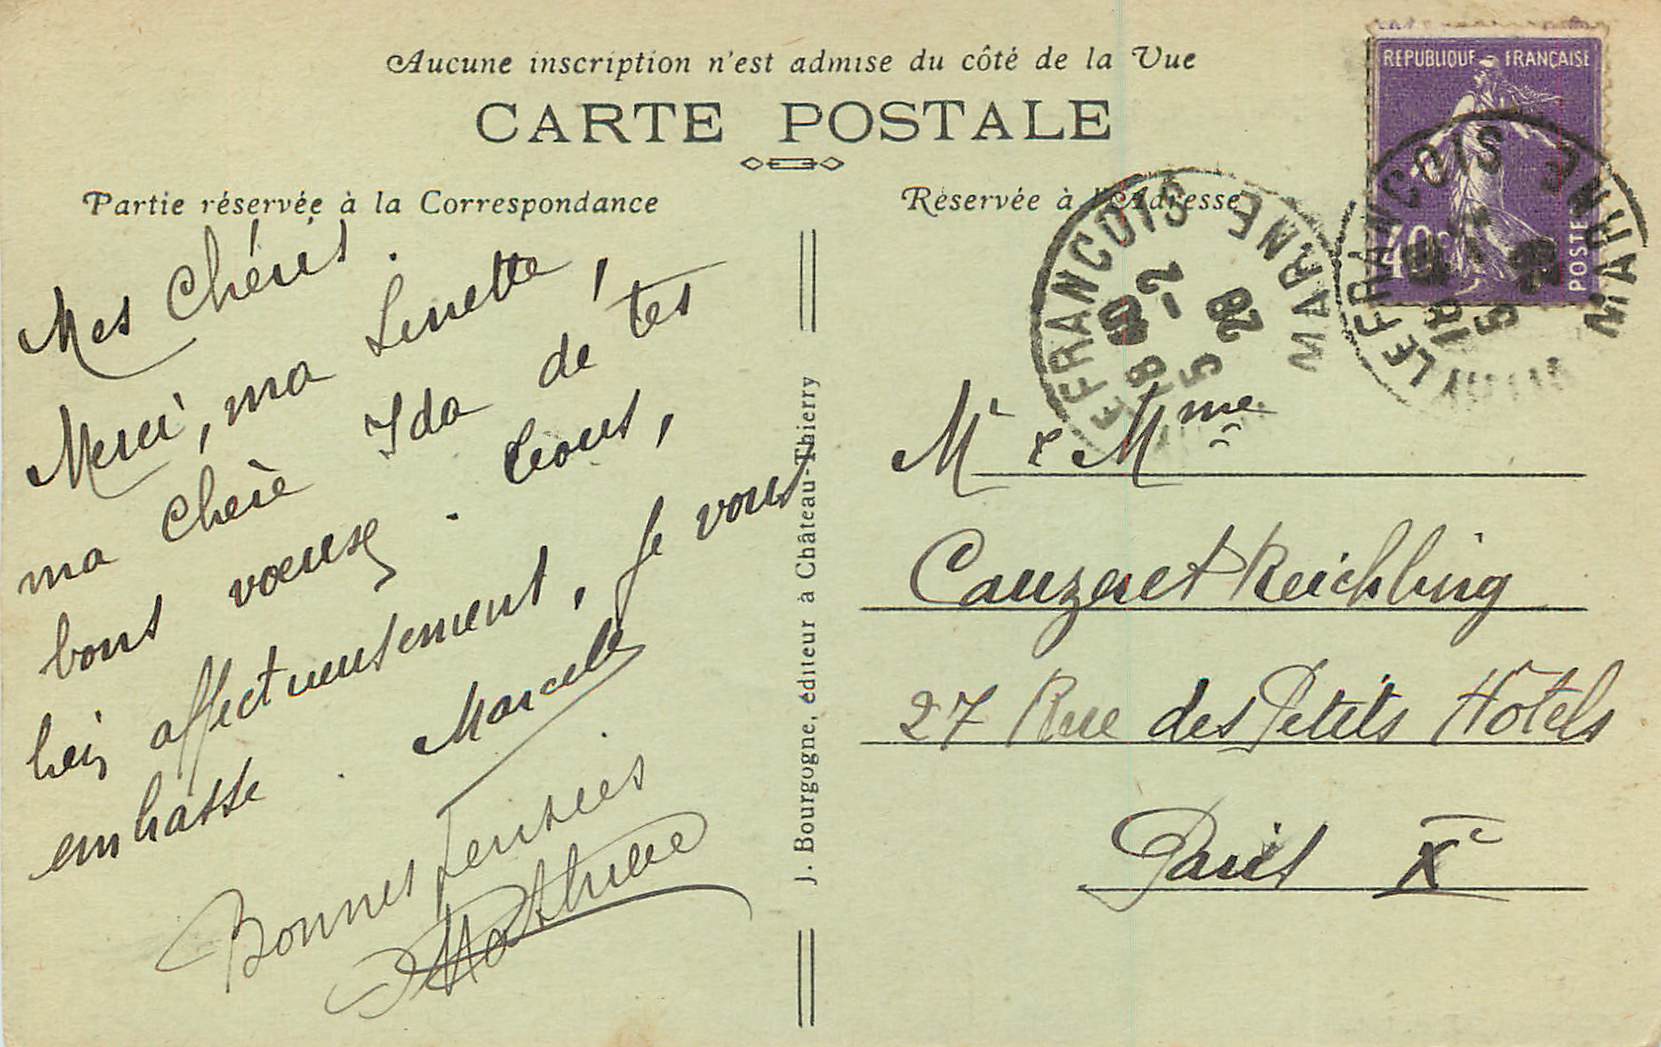 Aucune inscription n'est admise du côté de la Vue
CARTE POSTALE
Partie réservée à la Correspondance
Réservée à l'Adresse
REPUBLIQUE FRANÇAISE
40c
POSTES
FRANCOIS
MARNE
28
FRANCOIS
MARNE
Mes Chéris.
Merci, ma Linette,
ma chère Ida de tes
bons voeux. Tous,
bien affectueusement, je vous
embrasse. Marcelle
Bonnes Pensées
J. Bourgogne, éditeur à Château-Thierry
Mr & Mme
Cauzeret Reichling
27 Rue des Petits Hôtels
Paris Xe